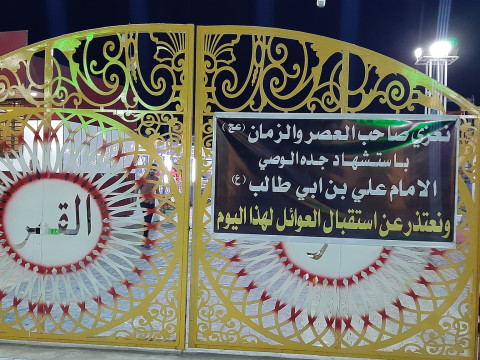 نعزي صاحب العصر والزمان (عج)
باستشهاد جده الوصي
الامام علي بن ابي طالب (ع)
ونعتذر عن استقبال العوائل لهذا اليوم
القمر